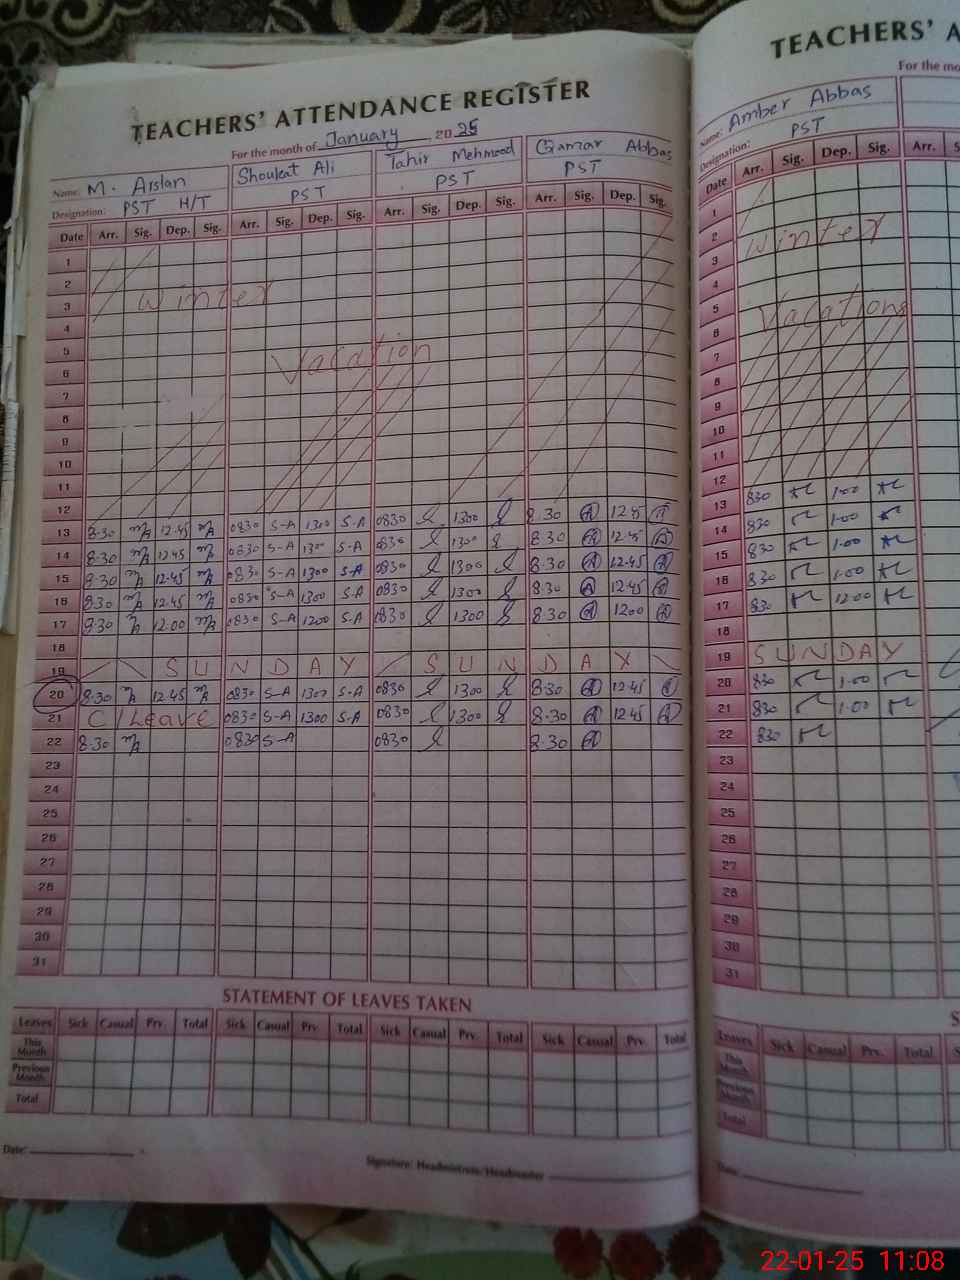 TEACHERS' ATTENDANCE REGISTER
For the month of January, 20 25
Name: M. Arslan Shoukat Ali Tahir Mehmood Qamar Abbas
Designation: PST H/T PST PST PST
Date Arr. Sig. Dep. Sig. Arr. Sig. Dep. Sig. Arr. Sig. Dep. Sig. Arr. Sig. Dep. Sig.
1
2
3 Winter
4
5
6 Vacation
7
8
9
10
11
12
13 8:30 12:45 0830 S-A 1300 S-A 0830 1300 8.30 12 45
14 8:30 12:45 0830 S-A 1300 S-A 0830 1300 8.30 12.45
15 8:30 12:45 0830 S-A 1300 S-A 0830 1300 8.30 12.45
16 8:30 12:45 0830 S-A 1300 S-A 0830 1300 8.30 12.45
17 8:30 12:00 0830 S-A 1200 S-A 0830 1300 8.30 1200
18
19 SUNDAY SUNDAY
20 8:30 12:45 0830 S-A 1300 S-A 0830 1300 8.30 12.45
21 C/Leave 0830 S-A 1300 S-A 0830 1300 8.30 12.45
22 8.30 0830 S-A 0830 8.30
23
24
25
26
27
28
29
30
31
STATEMENT OF LEAVES TAKEN
Leaves Sick Casual Prv. Total Sick Casual Prv. Total Sick Casual Prv. Total Sick Casual Prv. Total
This Month
Previous Month
Total
Date:
Signature: Headmistress/Headmaster
TEACHERS' A
For the mo
Name: Amber Abbas
Designation: PST
Date Arr. Sig. Dep. Sig. Arr. S
1
2 Winter
3
4
5 Vacations
6
7
8
9
10
11
12
13 830 1.00
14 830 1.00
15 830 1.00
16 830 1.00
17 830 12.00
18
19 SUNDAY
20 830 1.00
21 830 1.00
22 830
23
24
25
26
27
28
29
30
31
S
Leaves Sick Casual Prv. Total S
This Month
Previous Month
Total
Date:
22-01-25 11:08